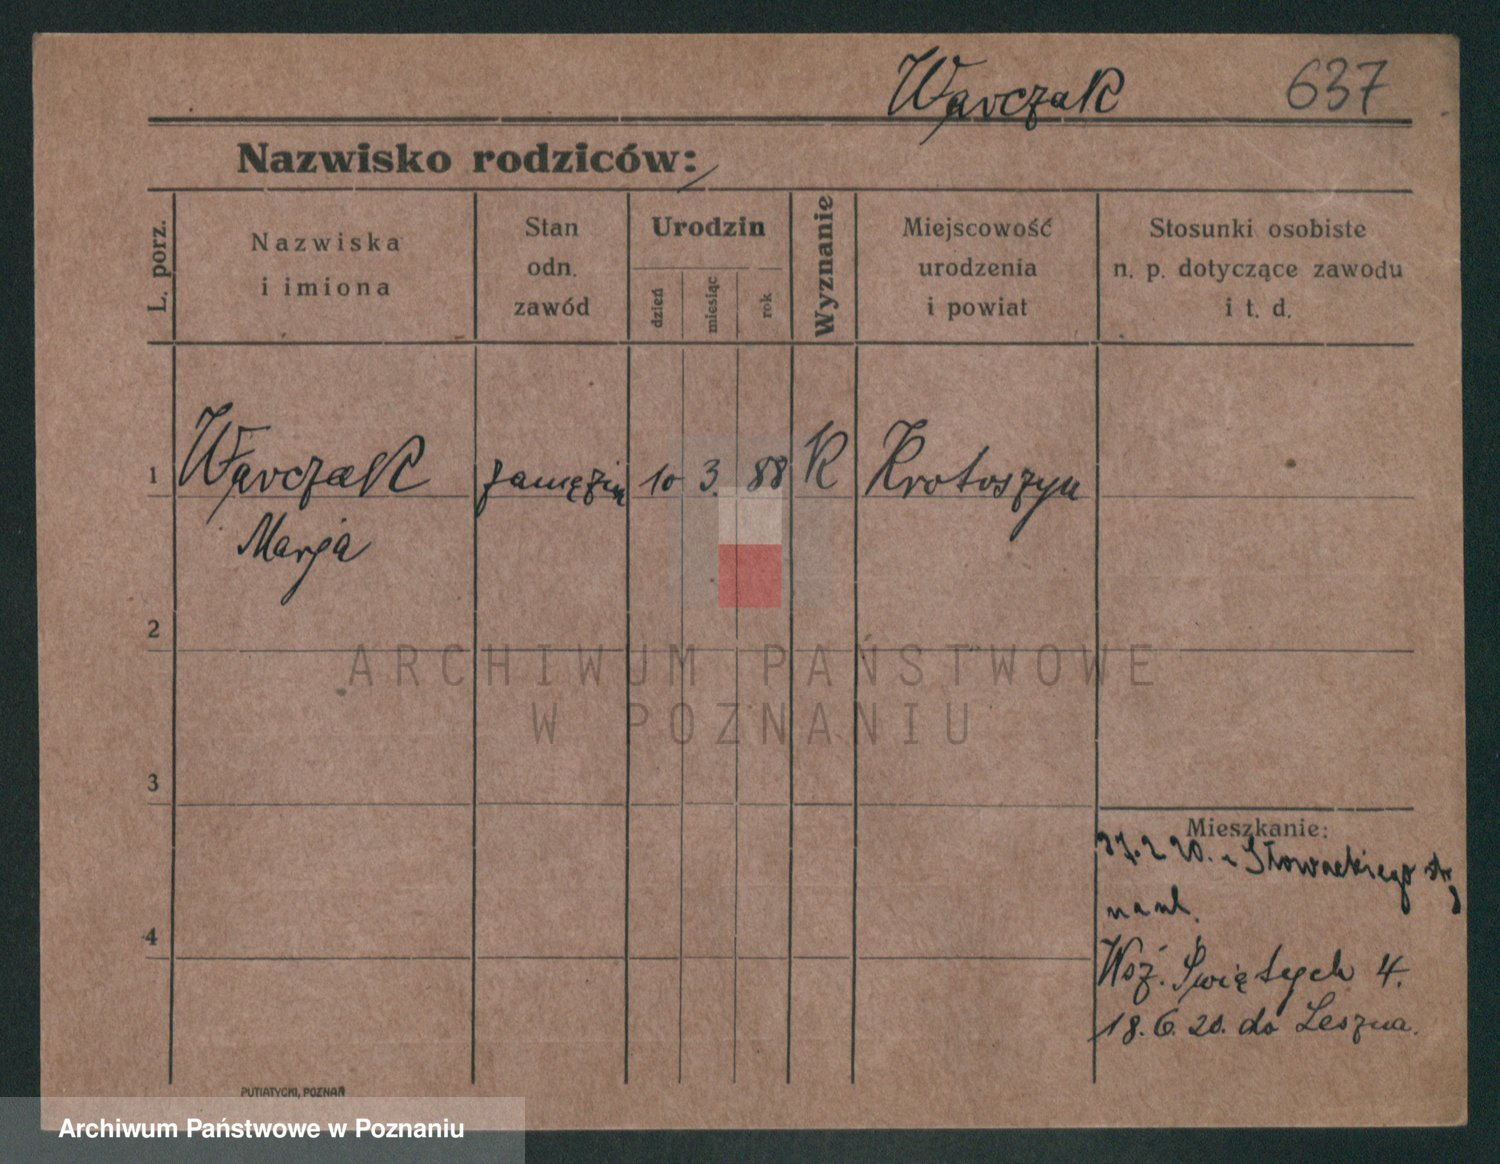 Warczak 637
Nazwisko rodziców:
L. porz.
Nazwiska
i imiona
Stan
odn.
zawód
Urodzin
dzień
miesiąc
rok
Wyznanie
Miejscowość
urodzenia
i powiat
Stosunki osobiste
n. p. dotyczące zawodu
i t. d.
1 Warczak zamężna 10 3. 88 K Krotoszyn
Marja
2
3
4
Mieszkanie:
2. 20. Słowackiego
na ul.
Wsz. Świętych 4.
18. 6. 20. do Leszna.
PUTIATYCKI, POZNAŃ
ARCHIWUM PAŃSTWOWE
W POZNANIU
Archiwum Państwowe w Poznaniu